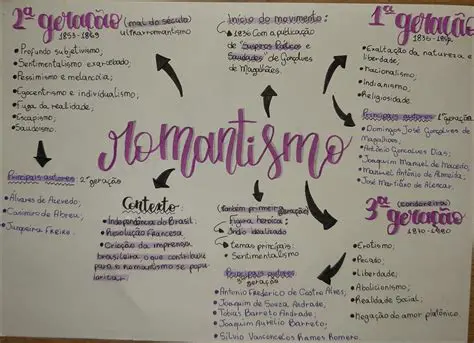 2ª geração
(mal do século)
1853-1869
ultrarromantismo
•Profundo subjetivismo;
•Sentimentalismo exacerbado;
•Pessimismo e melancolia;
•Egocentrismo e individualismo;
•Fuga da realidade;
•Escapismo;
•Saudosismo.
Principais autores
2ª geração
•Álvares de Azevedo;
•Casimiro de Abreu;
•Junqueira Freire.
Início do movimento:
↳1836 Com a publicação
de Suspiros Poéticos e
Saudades de Gonçalves
de Magalhães.
1ª geração
•Exaltação da natureza e
liberdade;
•Nacionalismo;
•Indianismo;
•Religiosidade
Principais autores 1ª geração
•Domingos José Gonçalves de
Magalhães;
•Antônio Gonçalves Dias;
•Joaquim Manuel de Macedo;
•Manuel Antônio de Almeida;
•José Martiniano de Alencar.
romantismo
Contexto:
•Independência do Brasil
•Revolução Francesa
•Criação da imprensa
brasileira, o que contribuiu
para o romantismo se popu
larizar.
(também primeira geração)
Figura heroica:
↳Índio idealizado
↳temas principais:
Sentimentalismo
Principais autores
geração
•Antonio Frederico de Castro Alves;
•Joaquim de Souza Andrade;
•Tobias Barreto Andrade;
•Joaquim Aurelio Barreto;
•Silvio Vasconcelos Ramos Romero.
3ª geração
(condoreira)
1870-1880
•Erotismo;
•Pecado;
•Liberdade;
•Abolicionismo;
•Realidade Social;
•Negação do amor platônico.